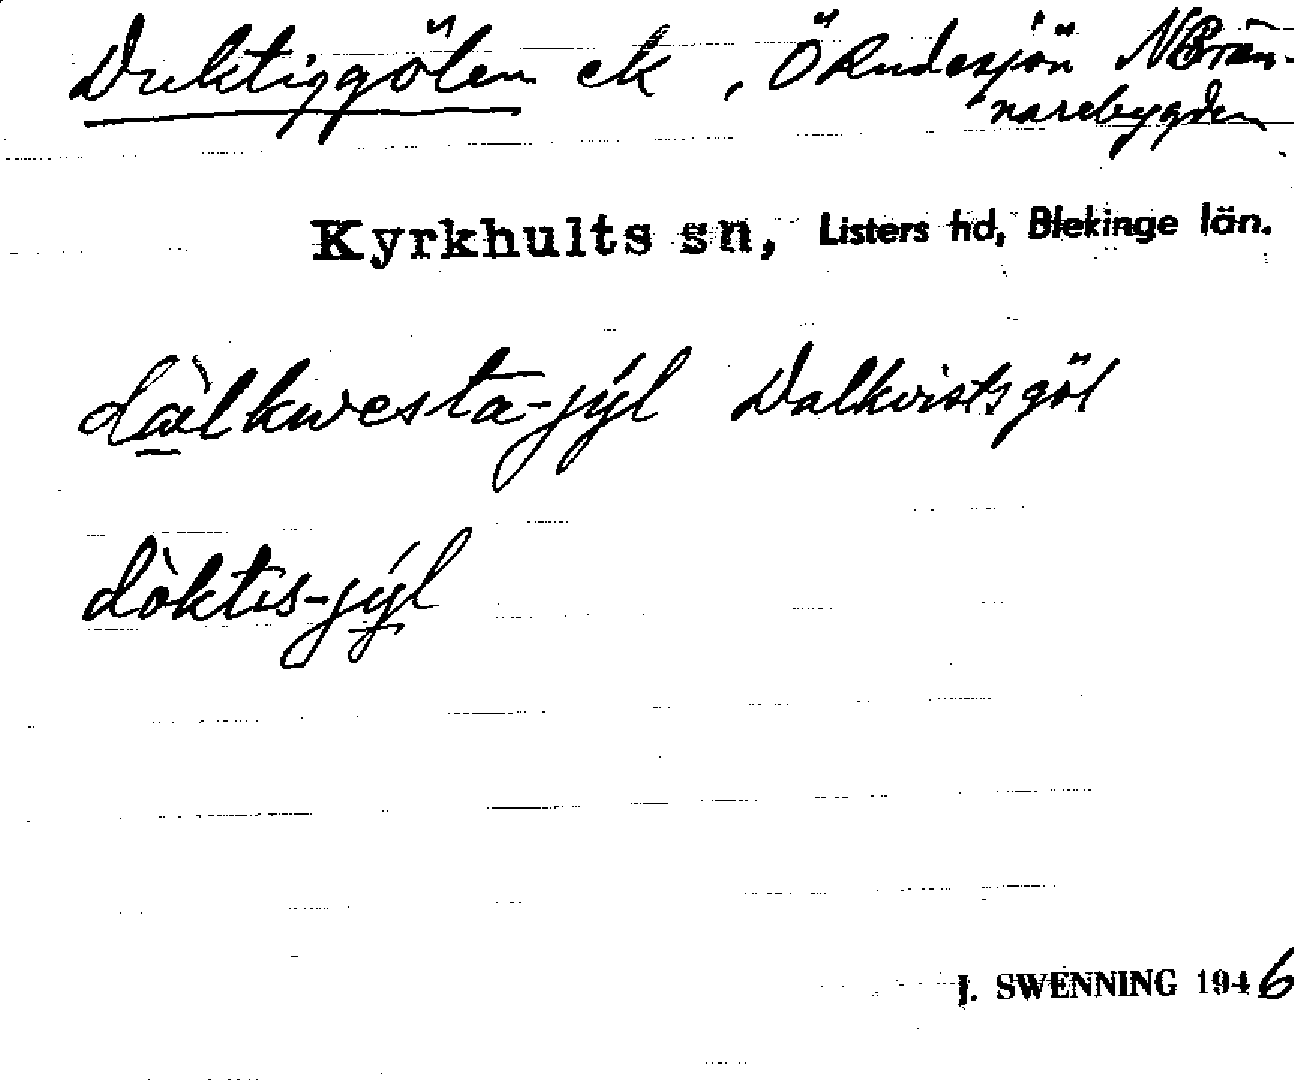 Duktiggölen ek, Ö Rudesjön N Brän-
narebygden
Kyrkhults sn, Listers hd, Blekinge län.
dàlkwesta-jýl Dalkvistsgöl
dòktis-jýl
J. SWENNING 1946